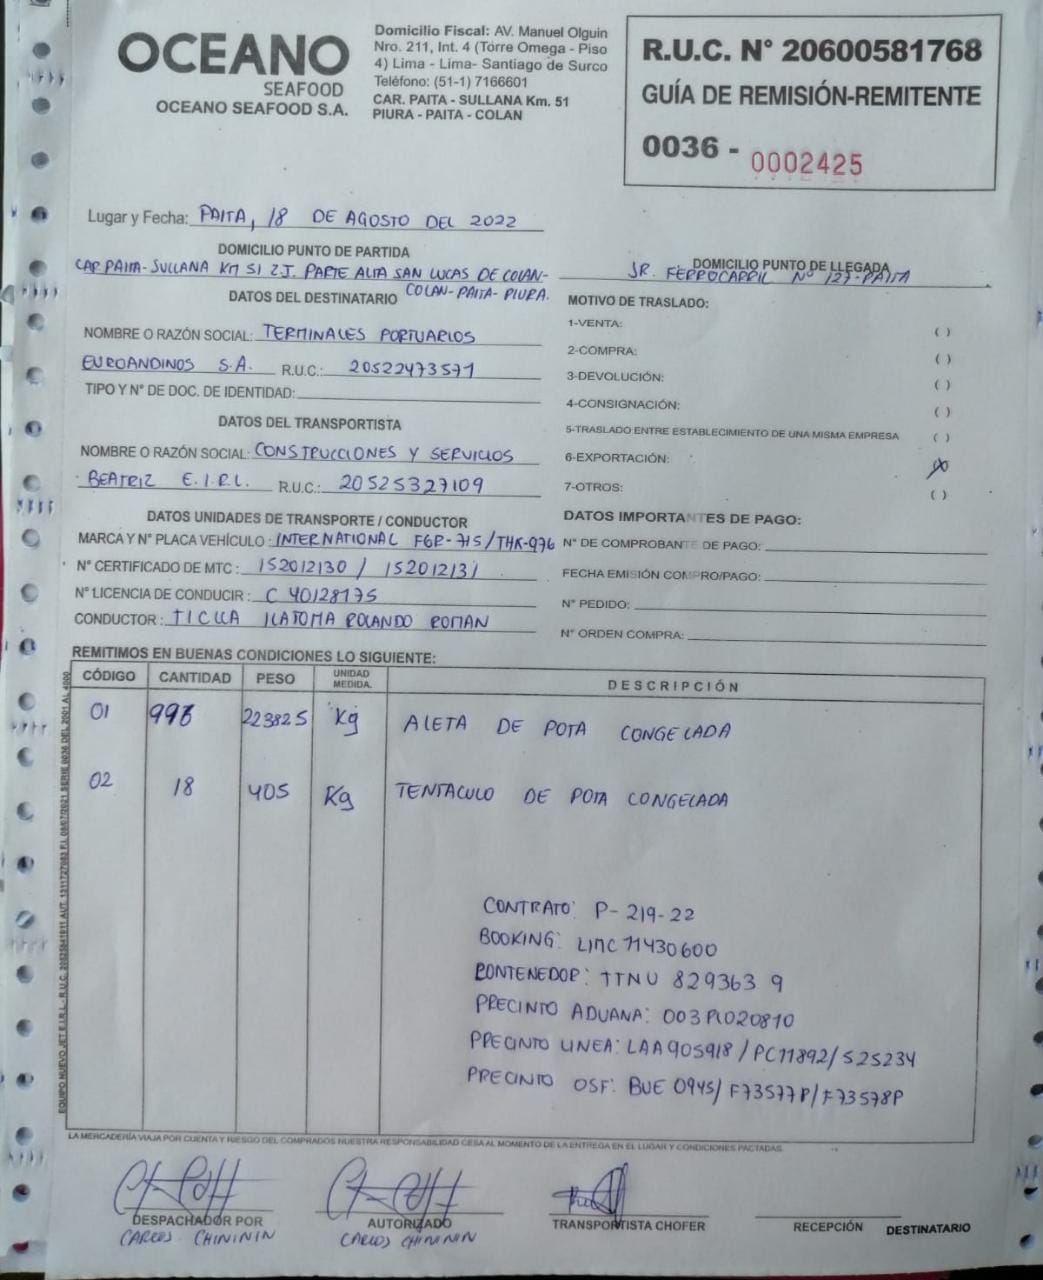 OCEANO
SEAFOOD
OCEANO SEAFOOD S.A.
Domicilio Fiscal: AV. Manuel Olguin
Nro. 211, Int. 4 (Torre Omega - Piso
4) Lima - Lima- Santiago de Surco
Teléfono: (51-1) 7166601
CAR. PAITA - SULLANA Km. 51
PIURA - PAITA - COLAN
R.U.C. N° 20600581768
GUÍA DE REMISIÓN-REMITENTE
0036 - 0002425
Lugar y Fecha: PAITA, 18 DE AGOSTO DEL 2022
DOMICILIO PUNTO DE PARTIDA
CAR PAITA- SULLANA KM 51 Z.I. PARTE ALTA SAN LUCAS DE COLAN-
COLAN-PAITA- PIURA.
DOMICILIO PUNTO DE LLEGADA
JR. FERROCARRIL N° 127-PAITA
DATOS DEL DESTINATARIO
NOMBRE O RAZÓN SOCIAL: TERMINALES PORTUARIOS
EUROANDINOS S.A. R.U.C.: 20522473571
TIPO Y N° DE DOC. DE IDENTIDAD:
DATOS DEL TRANSPORTISTA
NOMBRE O RAZÓN SOCIAL: CONSTRUCCIONES Y SERVICIOS
BEATRIZ E.I.R.L. R.U.C.: 20525327109
DATOS UNIDADES DE TRANSPORTE / CONDUCTOR
MARCA Y N° PLACA VEHÍCULO: INTERNATIONAL F6P-715/THK-976
N° CERTIFICADO DE MTC: 152012130 / 152012131
N° LICENCIA DE CONDUCIR: C 40128175
CONDUCTOR: TICLLA ILATOMA ROLANDO ROMAN
MOTIVO DE TRASLADO:
1-VENTA: ( )
2-COMPRA: ( )
3-DEVOLUCIÓN: ( )
4-CONSIGNACIÓN: ( )
5-TRASLADO ENTRE ESTABLECIMIENTO DE UNA MISMA EMPRESA ( )
6-EXPORTACIÓN: X
7-OTROS: ( )
DATOS IMPORTANTES DE PAGO:
N° DE COMPROBANTE DE PAGO:
FECHA EMISIÓN COMPRO/PAGO:
N° PEDIDO:
N° ORDEN COMPRA:
REMITIMOS EN BUENAS CONDICIONES LO SIGUIENTE:
CÓDIGO CANTIDAD PESO UNIDAD MEDIDA. DESCRIPCIÓN
01 996 223825 Kg ALETA DE POTA CONGELADA
02 18 405 Kg TENTACULO DE POTA CONGELADA
CONTRATO: P-219-22
BOOKING: LIMC 71430600
CONTENEDOR: TTNU 829363 9
PRECINTO ADUANA: 003PL020810
PRECINTO LINEA: LAA905918 / PC11892/ S25234
PRECINTO OSF: BUE 0945/ F73577P/ F73578P
LA MERCADERÍA VIAJA POR CUENTA Y RIESGO DEL COMPRADOS NUESTRA RESPONSABILIDAD CESA AL MOMENTO DE LA ENTREGA EN EL LUGAR Y CONDICIONES PACTADAS.
DESPACHADOR POR
CARLOS CHININÍN
AUTORIZADO
CARLOS CHININÍN
TRANSPORTISTA CHOFER
RECEPCIÓN DESTINATARIO